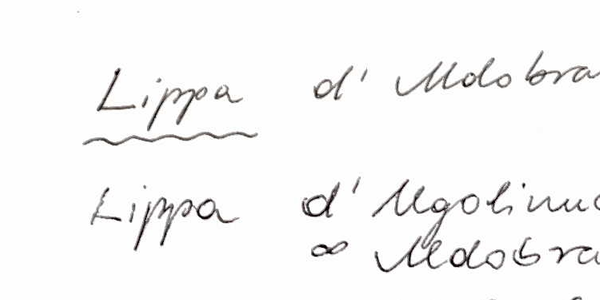 Lippa d' Aldobra
Lippa d' Ugolinuc
∞ Aldobra